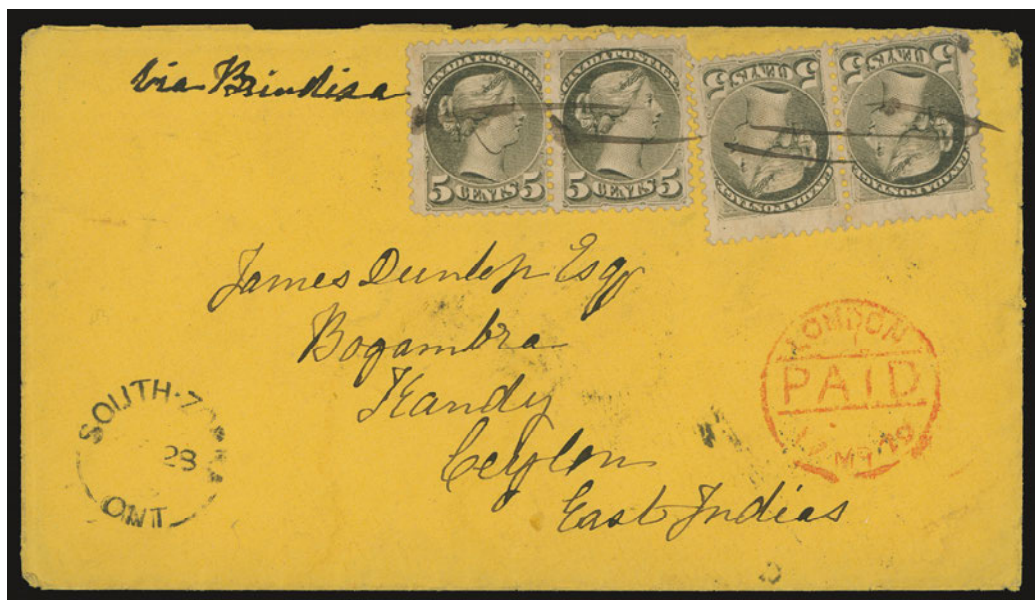 via Brindisa
CANADA POSTAGE
5 CENTS 5
CANADA POSTAGE
5 CENTS 5
CANADA POSTAGE
5 CENTS 5
CANADA POSTAGE
5 CENTS 5
James Dunlop Esqr
Bogambra
Kandy
Ceylon
East Indias
SOUTH-ZORRA
28
ONT
LONDON
PAID
MR 79